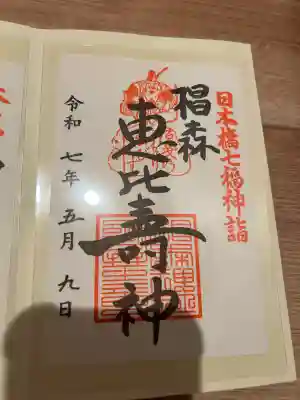 日本橋七福神詣
椙森
恵比壽神
令和七年五月九日